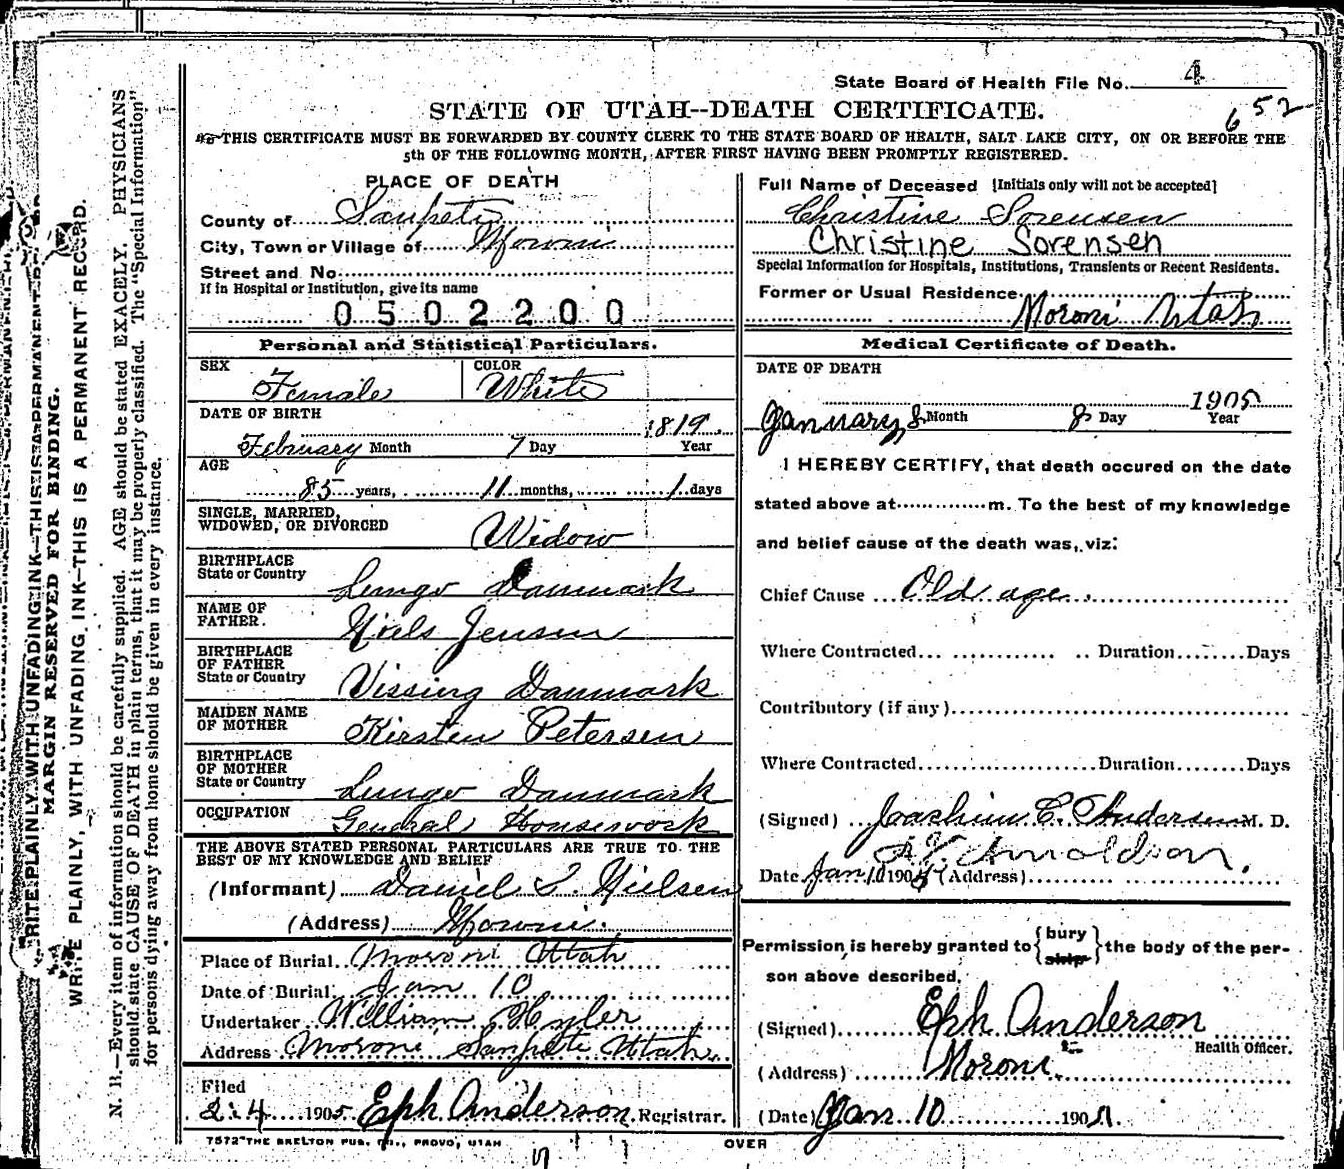 State Board of Health File No. 4
652
STATE OF UTAH--DEATH CERTIFICATE.
THIS CERTIFICATE MUST BE FORWARDED BY COUNTY CLERK TO THE STATE BOARD OF HEALTH, SALT LAKE CITY, ON OR BEFORE THE
5th OF THE FOLLOWING MONTH, AFTER FIRST HAVING BEEN PROMPTLY REGISTERED.
PLACE OF DEATH
County of Sanpete
City, Town or Village of Moroni
Street and No.
If in Hospital or Institution, give its name
0502200
Full Name of Deceased [Initials only will not be accepted]
Christine Sorensen
Christine Sorensen
Special Information for Hospitals, Institutions, Transients or Recent Residents.
Former or Usual Residence
Moroni Utah
Personal and Statistical Particulars.
SEX Female COLOR White
DATE OF BIRTH
1819
February Month 7 Day Year
AGE
85 years, 11 months, 1 days
SINGLE, MARRIED,
WIDOWED, OR DIVORCED Widow
BIRTHPLACE
State or Country Danmark
NAME OF
FATHER. Niels Jensen
BIRTHPLACE
OF FATHER
State or Country Vissing Danmark
MAIDEN NAME
OF MOTHER Kirsten Petersen
BIRTHPLACE
OF MOTHER
State or Country Danmark
OCCUPATION General Housework
THE ABOVE STATED PERSONAL PARTICULARS ARE TRUE TO THE
BEST OF MY KNOWLEDGE AND BELIEF
(Informant) Daniel Nielsen
(Address) Moroni
Place of Burial Moroni Utah
Date of Burial Jan 10
Undertaker William Hyler
Address Moroni Sanpete Utah
Filed
2-4 1905 Eph Anderson Registrar.
7572 THE SKELTON PUB. CO., PROVO, UTAH
Medical Certificate of Death.
DATE OF DEATH
1905
January 8 Month 8 Day Year
I HEREBY CERTIFY, that death occured on the date
stated above at m. To the best of my knowledge
and belief cause of the death was, viz:
Chief Cause Old age
Where Contracted Duration Days
Contributory (if any)
Where Contracted Duration Days
(Signed) Joachim C. Andersen M. D.
Date Jan 10 1905 (Address)
Permission is hereby granted to {bury ship} the body of the per-
son above described.
(Signed) Eph Anderson
Health Officer.
(Address) Moroni
(Date) Jan 10 1905
OVER
MARGIN RESERVED FOR BINDING.
WRITE PLAINLY, WITH UNFADING INK—THIS IS A PERMANENT RECORD.
N. B.—Every item of information should be carefully supplied. AGE should be stated EXACELY. PHYSICIANS
should state CAUSE OF DEATH in plain terms, that it may be properly classified. The "Special Information"
for persons dying away from home should be given in every instance.